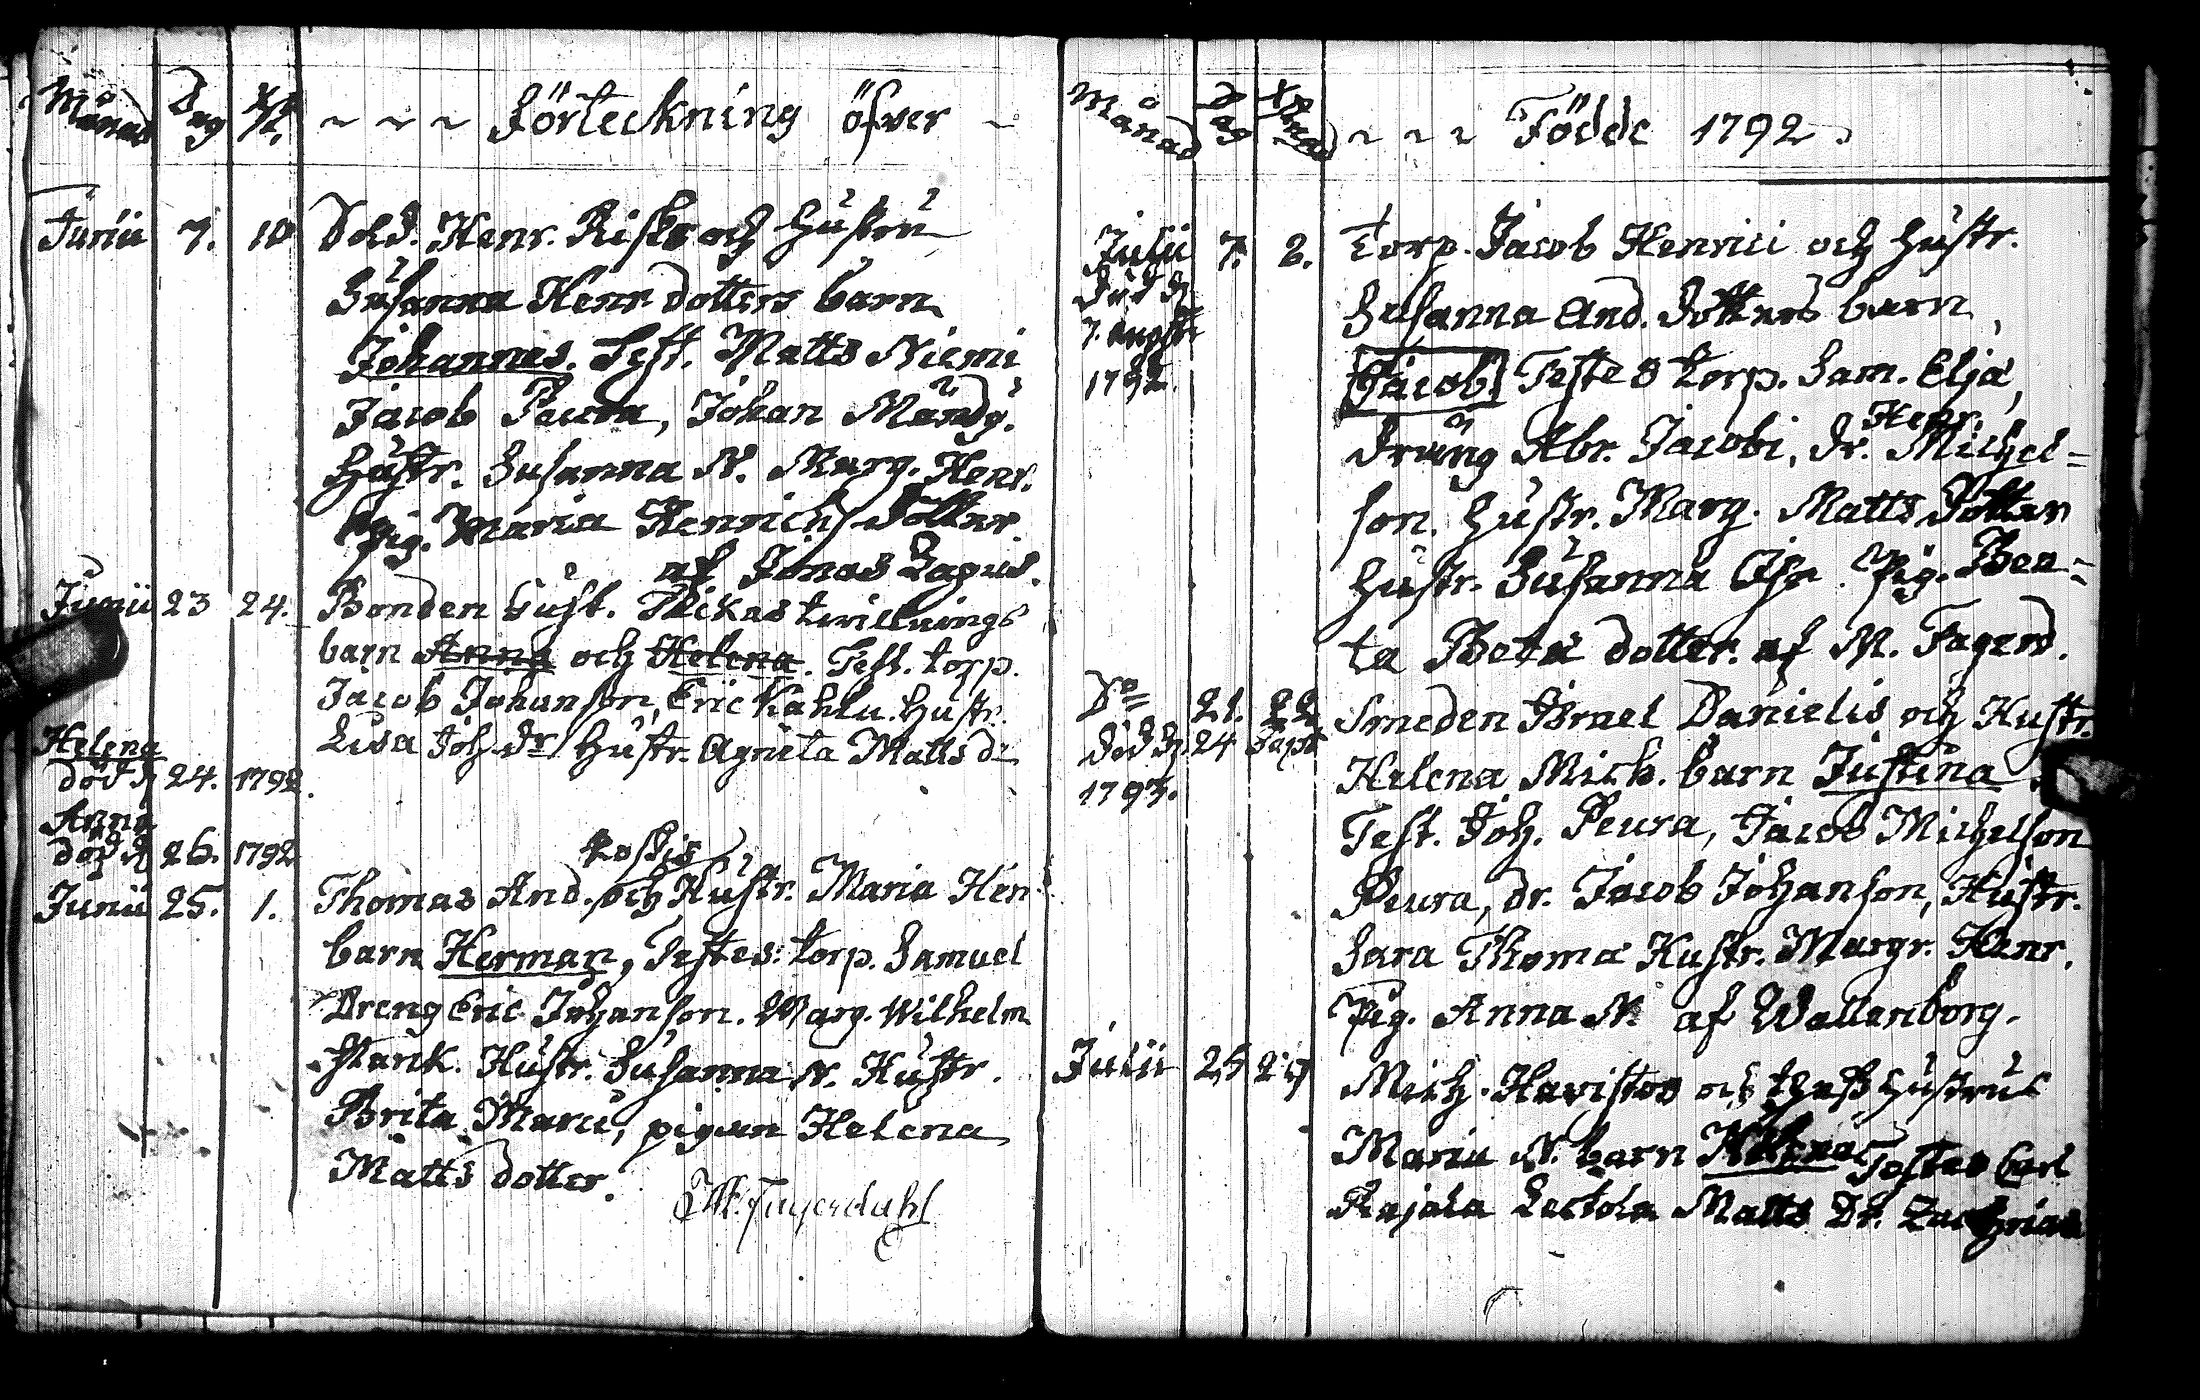 Månad Dag ~ ~ ~ Förteckning öfwer ~
Junii 7. 10 Sold. Henr. Risks och hustru
Susanna Henr dotters barn
Johannes. Test. Matts Niemi
Jacob Peura, Johan
Hustr. Susanna N. Marg. Henr.
Pig. Maria Henrichs dotter.
af Jonas Lagus.
Junii 23 24. Bonden Gust. twillnings
barn Anna och Helena. Test. torp.
Jacob Johanson, Eric Kahlu. Hustr.
Lisa Joh. dr Hustr. Agneta Matts dr
Helena
död d 24. 1792.
Anna
död d 26. 1792
Koskis
Junii 25. 1. Thomas And. och Hustr. Maria Hen
barn Herman, Testes: torp. Samuel
Dreng Eric Johanson. Marg. Wilhelm
Stark. Hustr. Susanna N. Hustr.
Brita Marci, pigan Helena
Matts dotter.
M. Fagerdahl
Månad Dag ~ ~ ~ Födde 1792
Julii 7. 2. Torp. Jacob Henrici och hustr.
död d Susanna And. dotters barn
7. Augsti
1792. Jacob. Testes torp. Sam. Eliæ,
Henr.
dräng Abr. Jacobi, dr. Michel=
son. hustr. Marg. Matts Dotter
hustr. Susanna Pig. Bea=
ta Beata dotter. af M. Fagerd.
Do 21. 22 Smeden Israel Danielis och Hustr.
död d. 24 Sept Helena Mich. barn Justina
1793. Test. Joh. Peura, Jacob Michelson
Peura, dr. Jacob Johanson, Hustr.
Sara Thomæ Hustr. Margr. Henr.
Pig. Anna N. af Wallenborg.
Julii 25 Mich. Havistos och thess hustrus
Maria N. barn Helena Testes Carl
Rajala Matts Dr. Zachrias